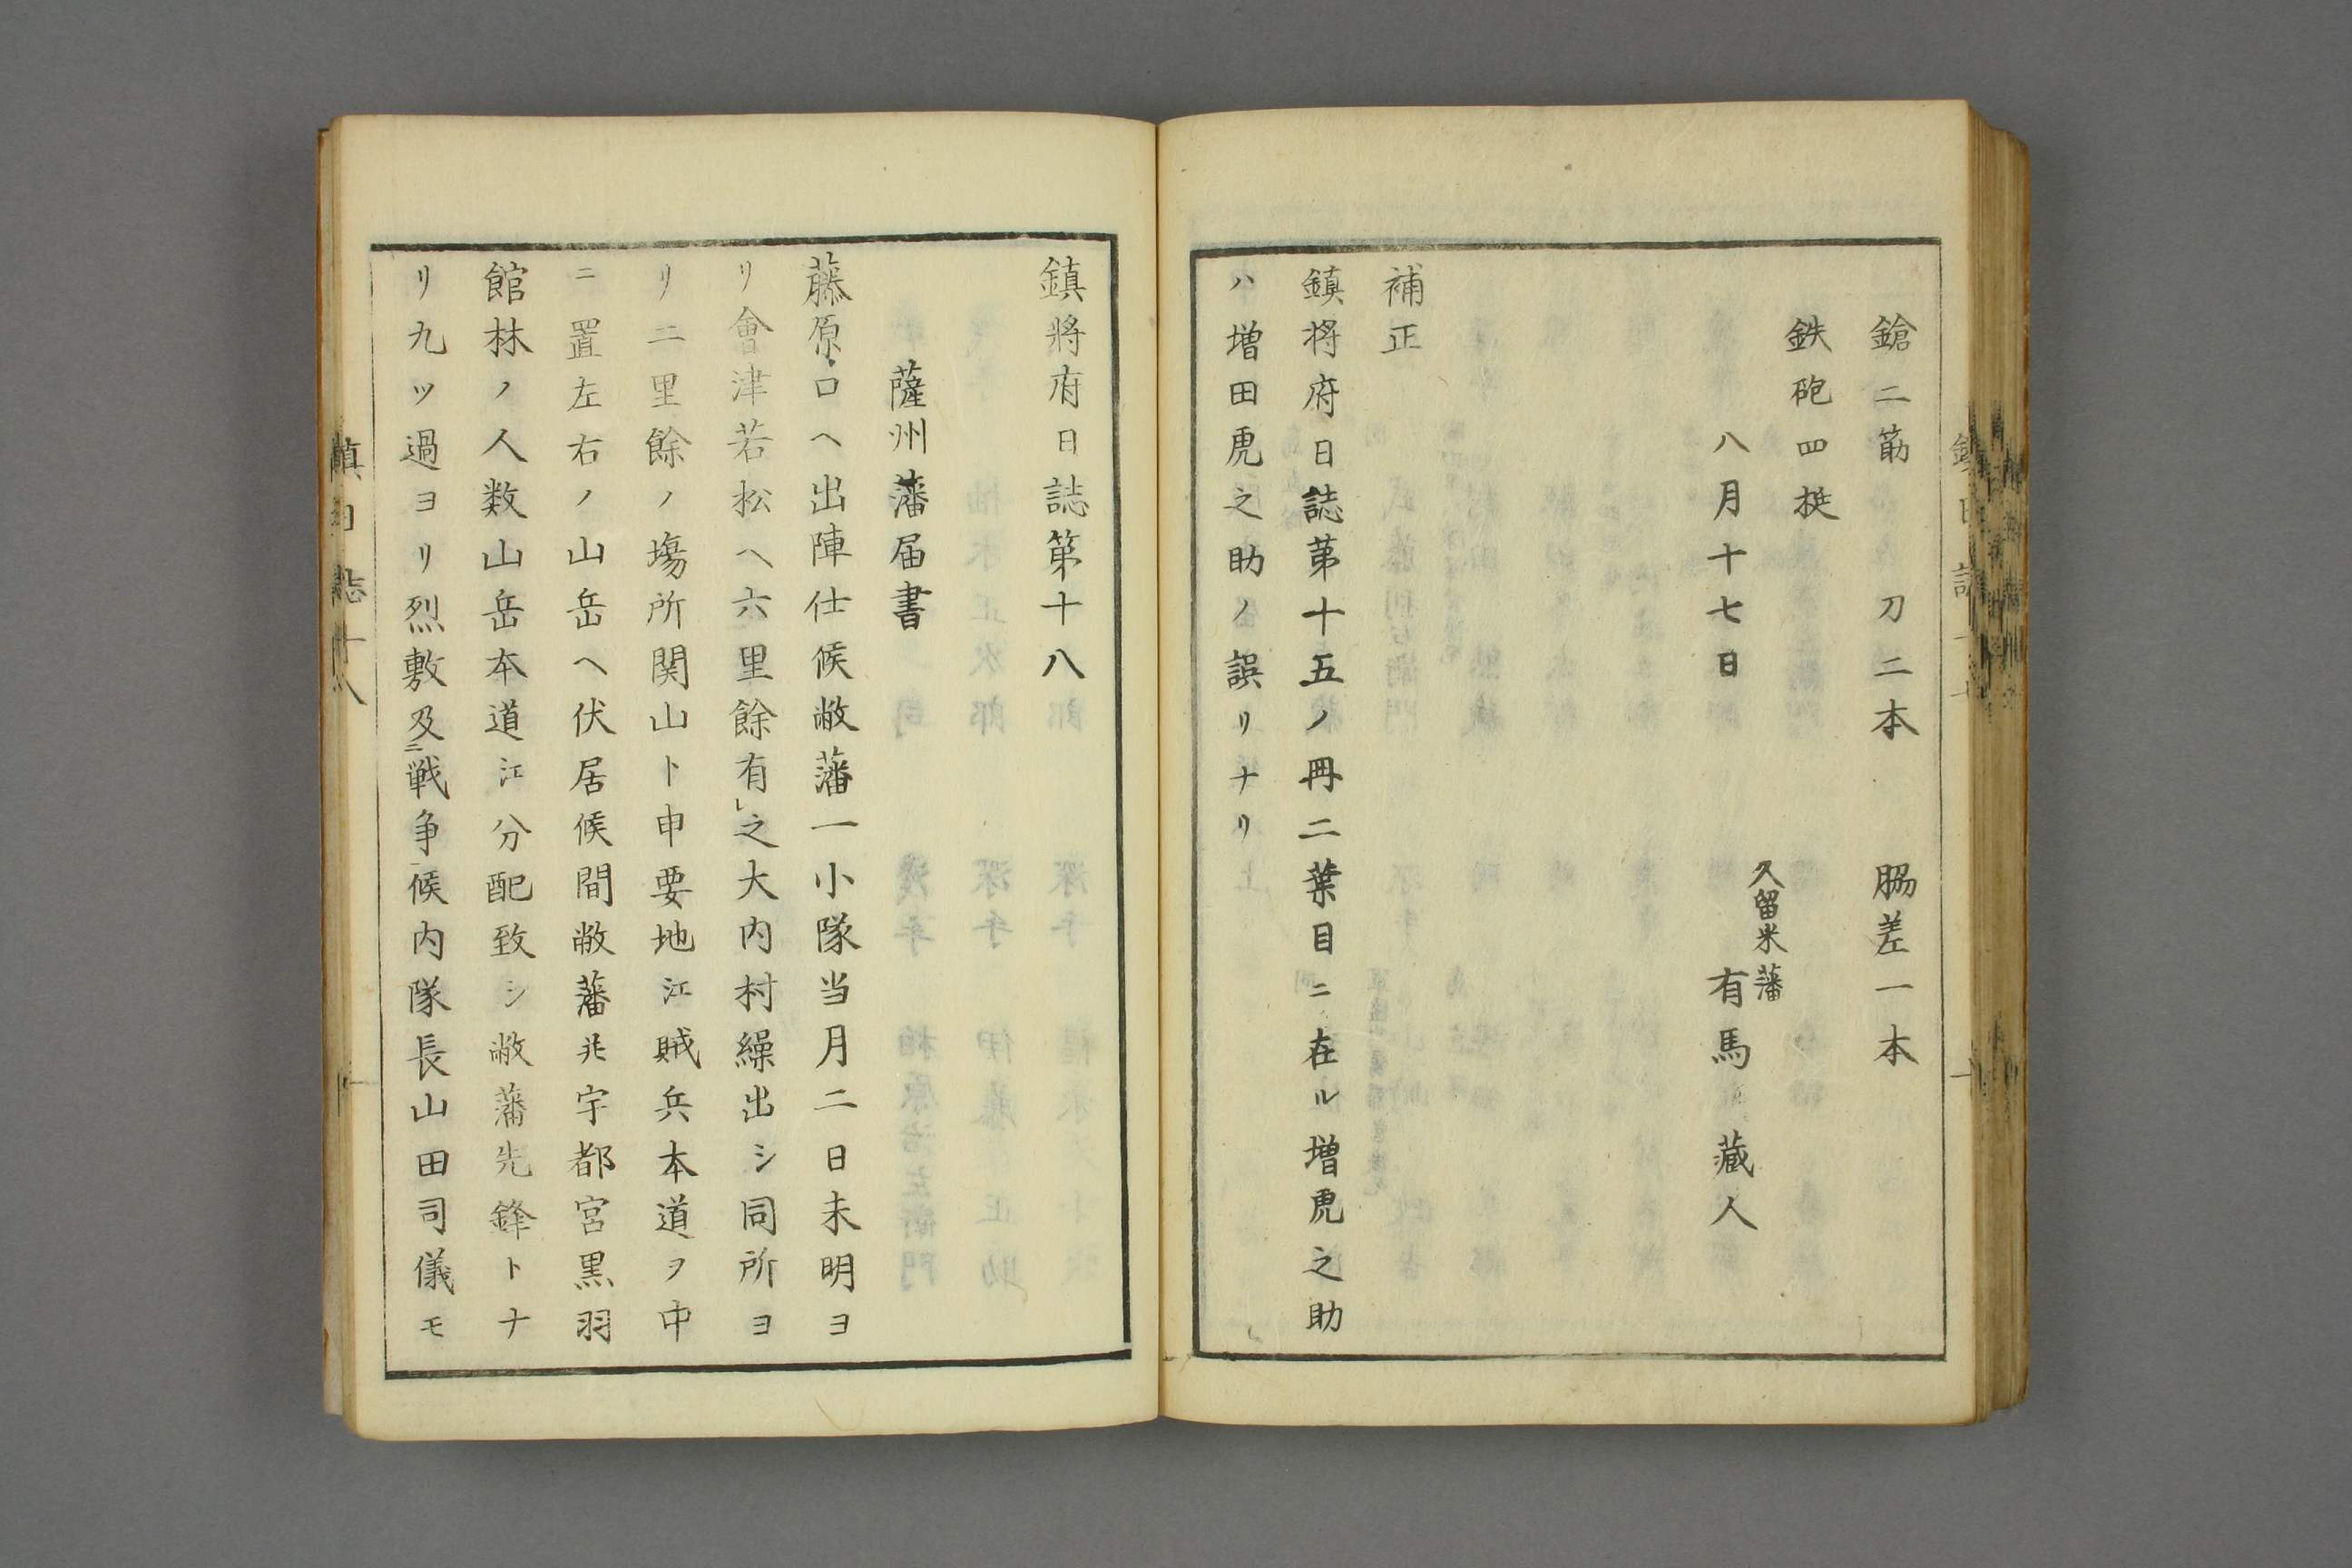 鎗二筋　刀二本　脇差一本
鉄砲四挺
久留米藩
八月十七日　有馬藏人
補正
鎮将府日誌苐十五ノ冊二葉目ニ在ル増虎之助
ハ増田虎之助ノ誤リナリ
鎮將府日誌第十八
薩州藩届書
藤原口ヘ出陣仕候敝藩一小隊当月二日未明ヨ
リ會津若松ヘ六里餘有之大内村繰出シ同所ヨ
リ二里餘ノ塲所関山ト申要地江賊兵本道ヲ中
ニ置左右ノ山岳ヘ伏居候間敝藩并宇都宮黒羽
館林ノ人数山岳本道江分配致シ敝藩先鋒トナ
リ九ツ過ヨリ烈敷及ニ戦争候内隊長山田司儀モ
鎮日誌十八